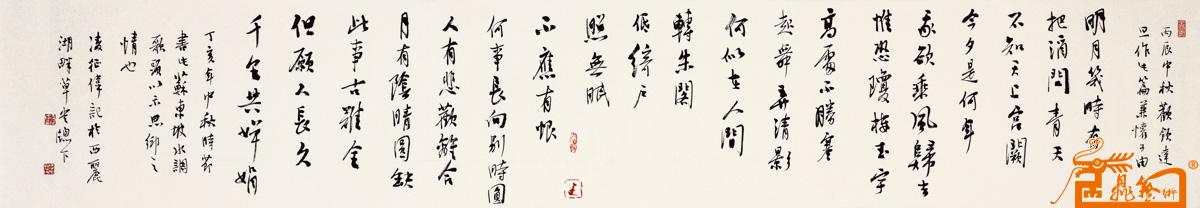 丙辰中秋歡飲達
旦作此篇兼懷子由
明月幾時有
把酒問青天
不知天上宮闕
今夕是何年
我欲乘風歸去
惟恐瓊樓玉宇
高處不勝寒
起舞弄清影
何似在人間
轉朱閣
低綺户
照無眠
不應有恨
何事長向別時圓
人有悲歡離合
月有陰晴圓缺
此事古難全
但願人長久
千里共嬋娟
丁亥年中秋時節
書此蘇東坡水調
歌頭以示思鄉之
情也
凌征偉記於西麗
湖畔草堂窗下